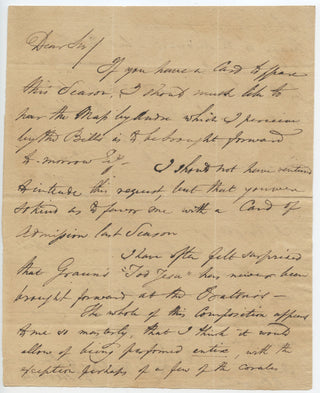 Dear Sir/
If you have a Card to spare
this Season, I should much like to
hear the Mass by Andre which I perceive
by the Bills is to be brought forward
to-morrow
I should not have ventured
to intrude this request, but that you were
so kind as to favor me with a Card of
Admission last Season
I have often felt surprised
that Graun's "Tod Jesu" has never been
brought forward at the Oratorios –
The whole of this Composition appears
to me so masterly, that I think it would
allow of being performed entire, with the
exception perhaps of a few of the corales